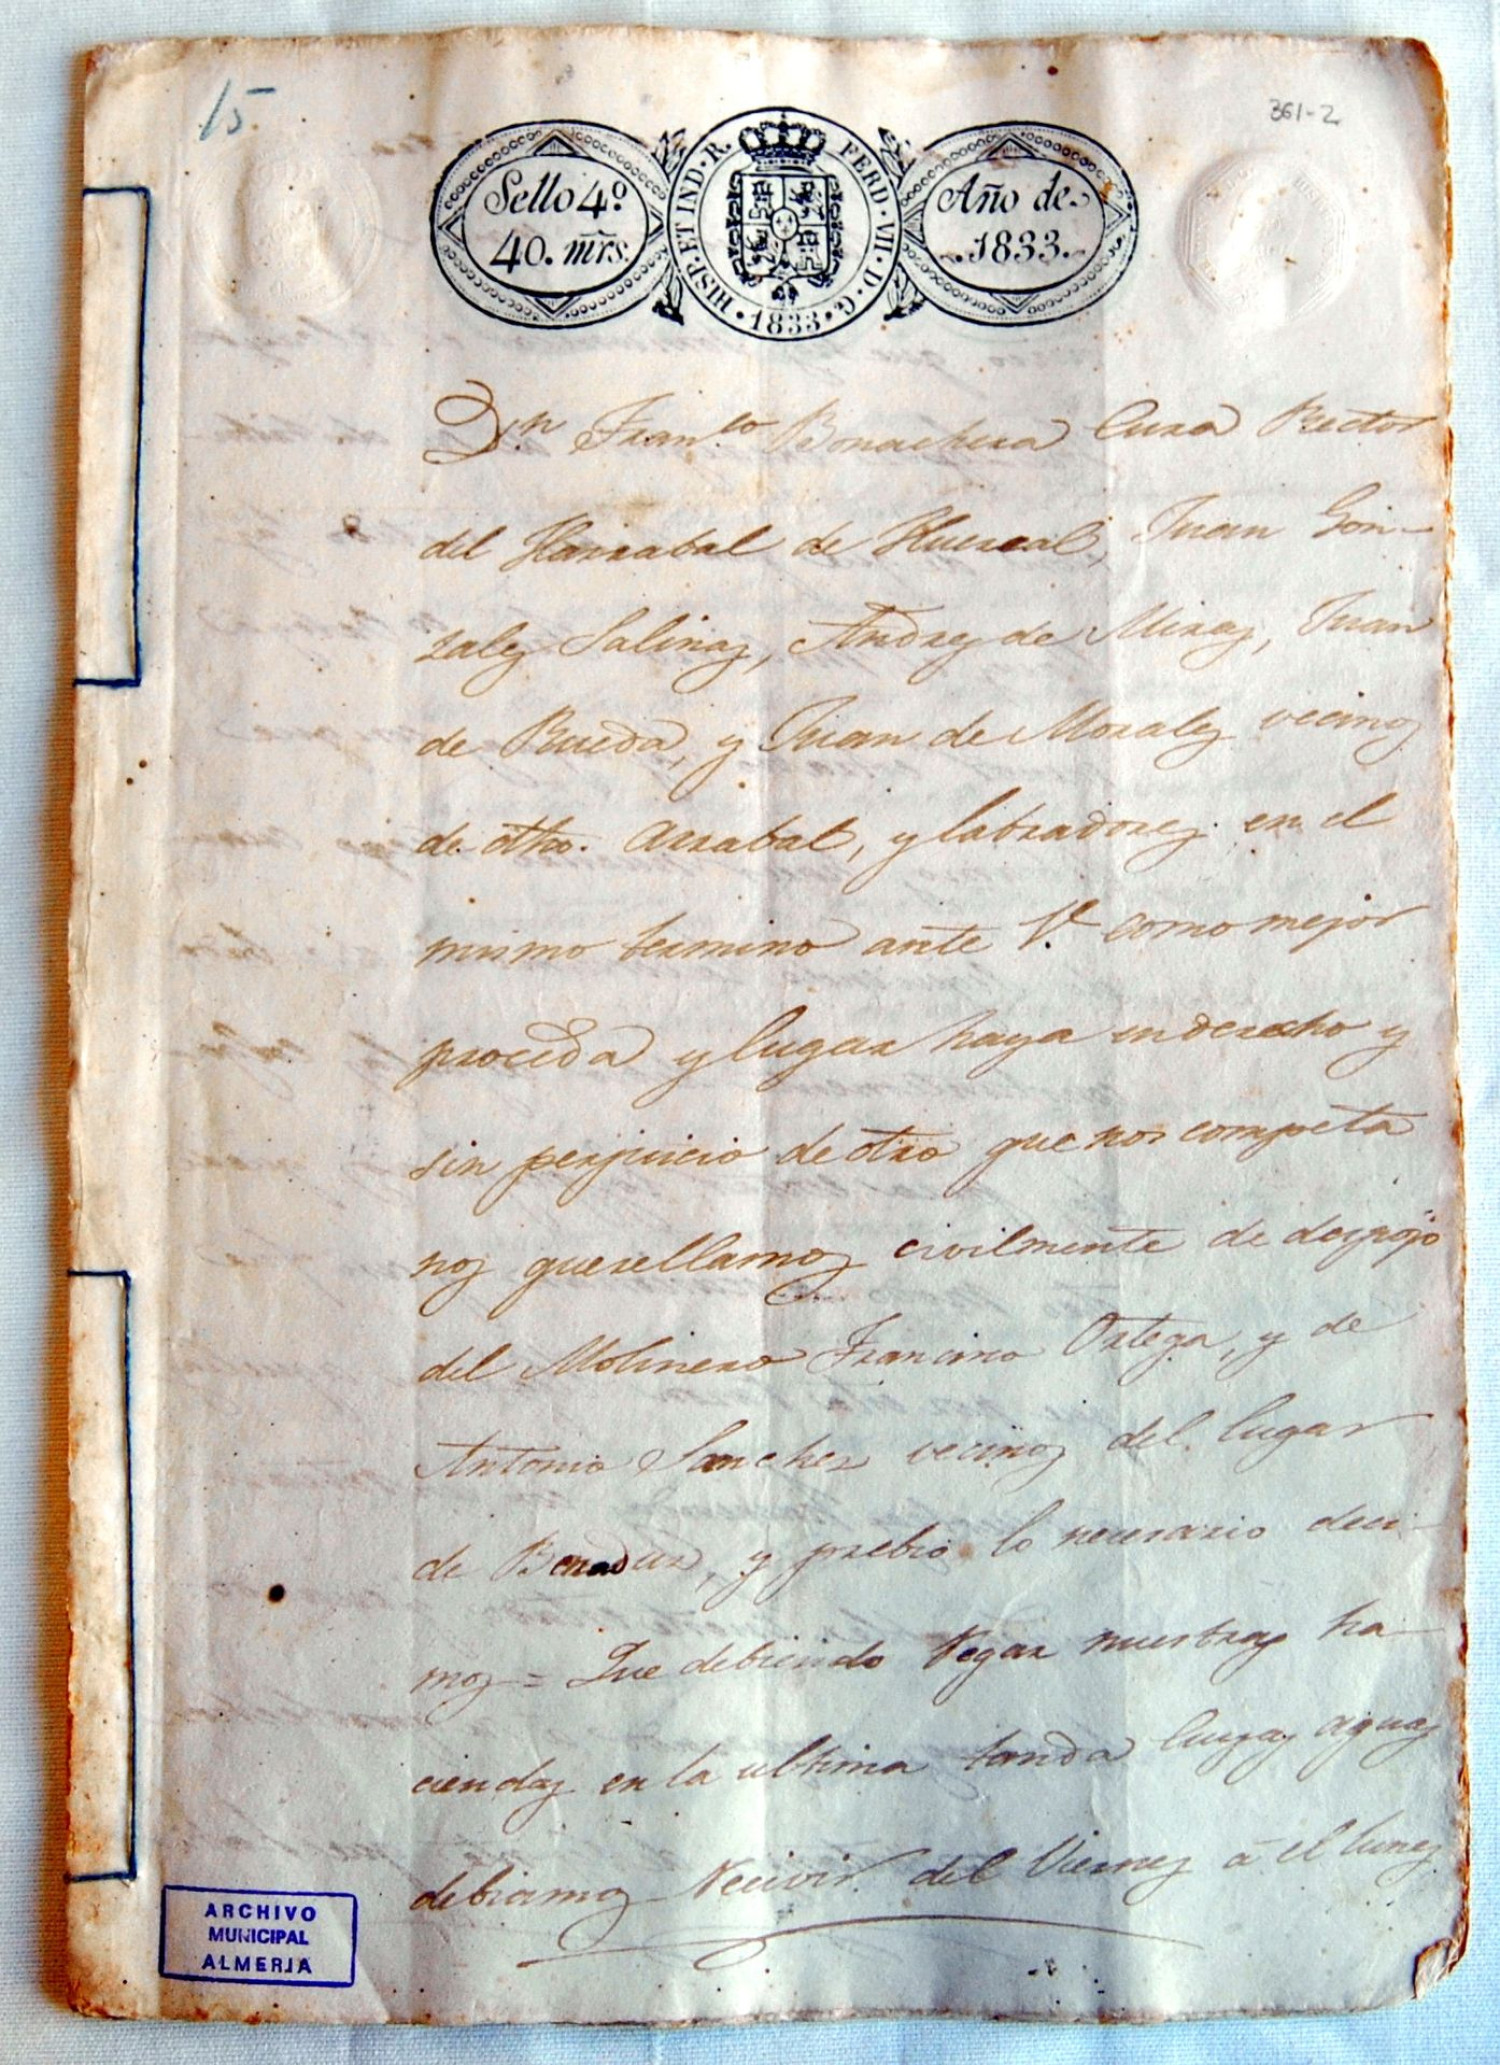 15
361-2
Sello 4º
40. mrs.
HISP. ET IND. R. FERD. VII. D. G. 1833
Año de
1833.
Dn Franco Bonachera Cura Rector
del Harrabal de Huercal, Juan Gon-
zales Salinas, Andres de Miras, Juan
de Rueda, y Juan de Morales vecinos
de dho. arrabal, y labradores en el
mismo termino ante V. como mejor
proceda y lugar haya en derecho y
sin perjuicio de otro que nos competa
nos querellamos civilmente de despojo
del Molinero Francisco Ortega, y de
Antonio Sanchez vecinos del lugar
de Benadux, y prebio lo necesario deci-
mos = Que debiendo Regar nuestras ha-
ciendas en la ultima tanda cuyas aguas
debiamos Recivir del Viernes á el lunes
ARCHIVO
MUNICIPAL
ALMERIA